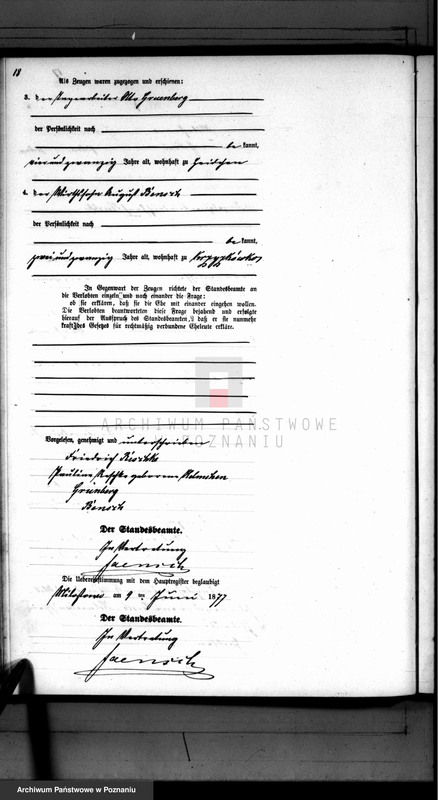 18
Als Zeugen waren zugezogen und erschienen:
3. der Tagearbeiter Otto Gruenberg
der Persönlichkeit nach
be kannt,
vierundzwanzig Jahre alt, wohnhaft zu
4. der Wirthssohn August Bensch
der Persönlichkeit nach
be kannt,
zweiundzwanzig Jahre alt, wohnhaft zu
In Gegenwart der Zeugen richtete der Standesbeamte an
die Verlobten einzeln und nach einander die Frage:
ob sie erklären, daß sie die Ehe mit einander eingehen wollen.
Die Verlobten beantworteten diese Frage bejahend und erfolgte
hierauf der Ausspruch des Standesbeamten, daß er sie nunmehr
kraft des Gesetzes für rechtmäßig verbundene Eheleute erkläre.
ARCHIWUM PAŃSTWOWE
W POZNANIU
Vorgelesen, genehmigt und unterschrieben
Friedrich
Pauline geborene
Grünberg
Bensch
Der Standesbeamte.
In Vertretung
Jaensch
Die Uebereinstimmung mit dem Hauptregister beglaubigt
Milostowo am 9 ten Juni 1877
Der Standesbeamte.
In Vertretung
Jaensch
Archiwum Państwowe w Poznaniu